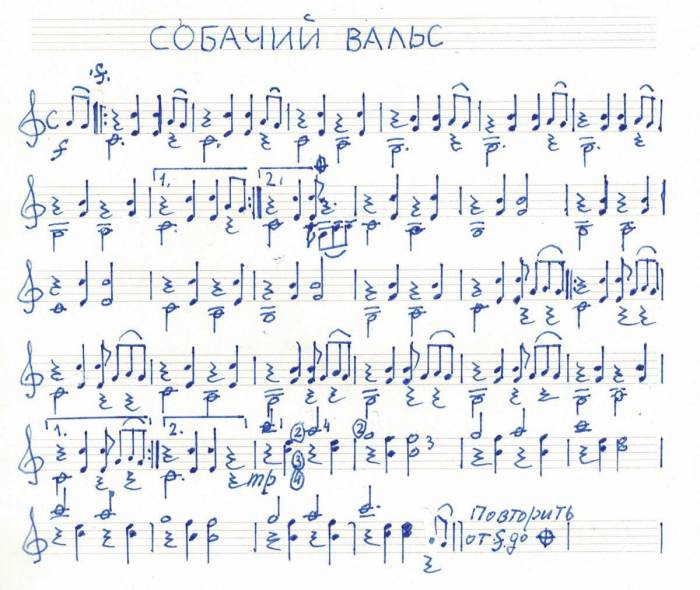 СОБАЧИЙ ВАЛЬС
C
f
1. 2.
1. 2.
2 4 2
mp 3 3
4
Повторить
от до